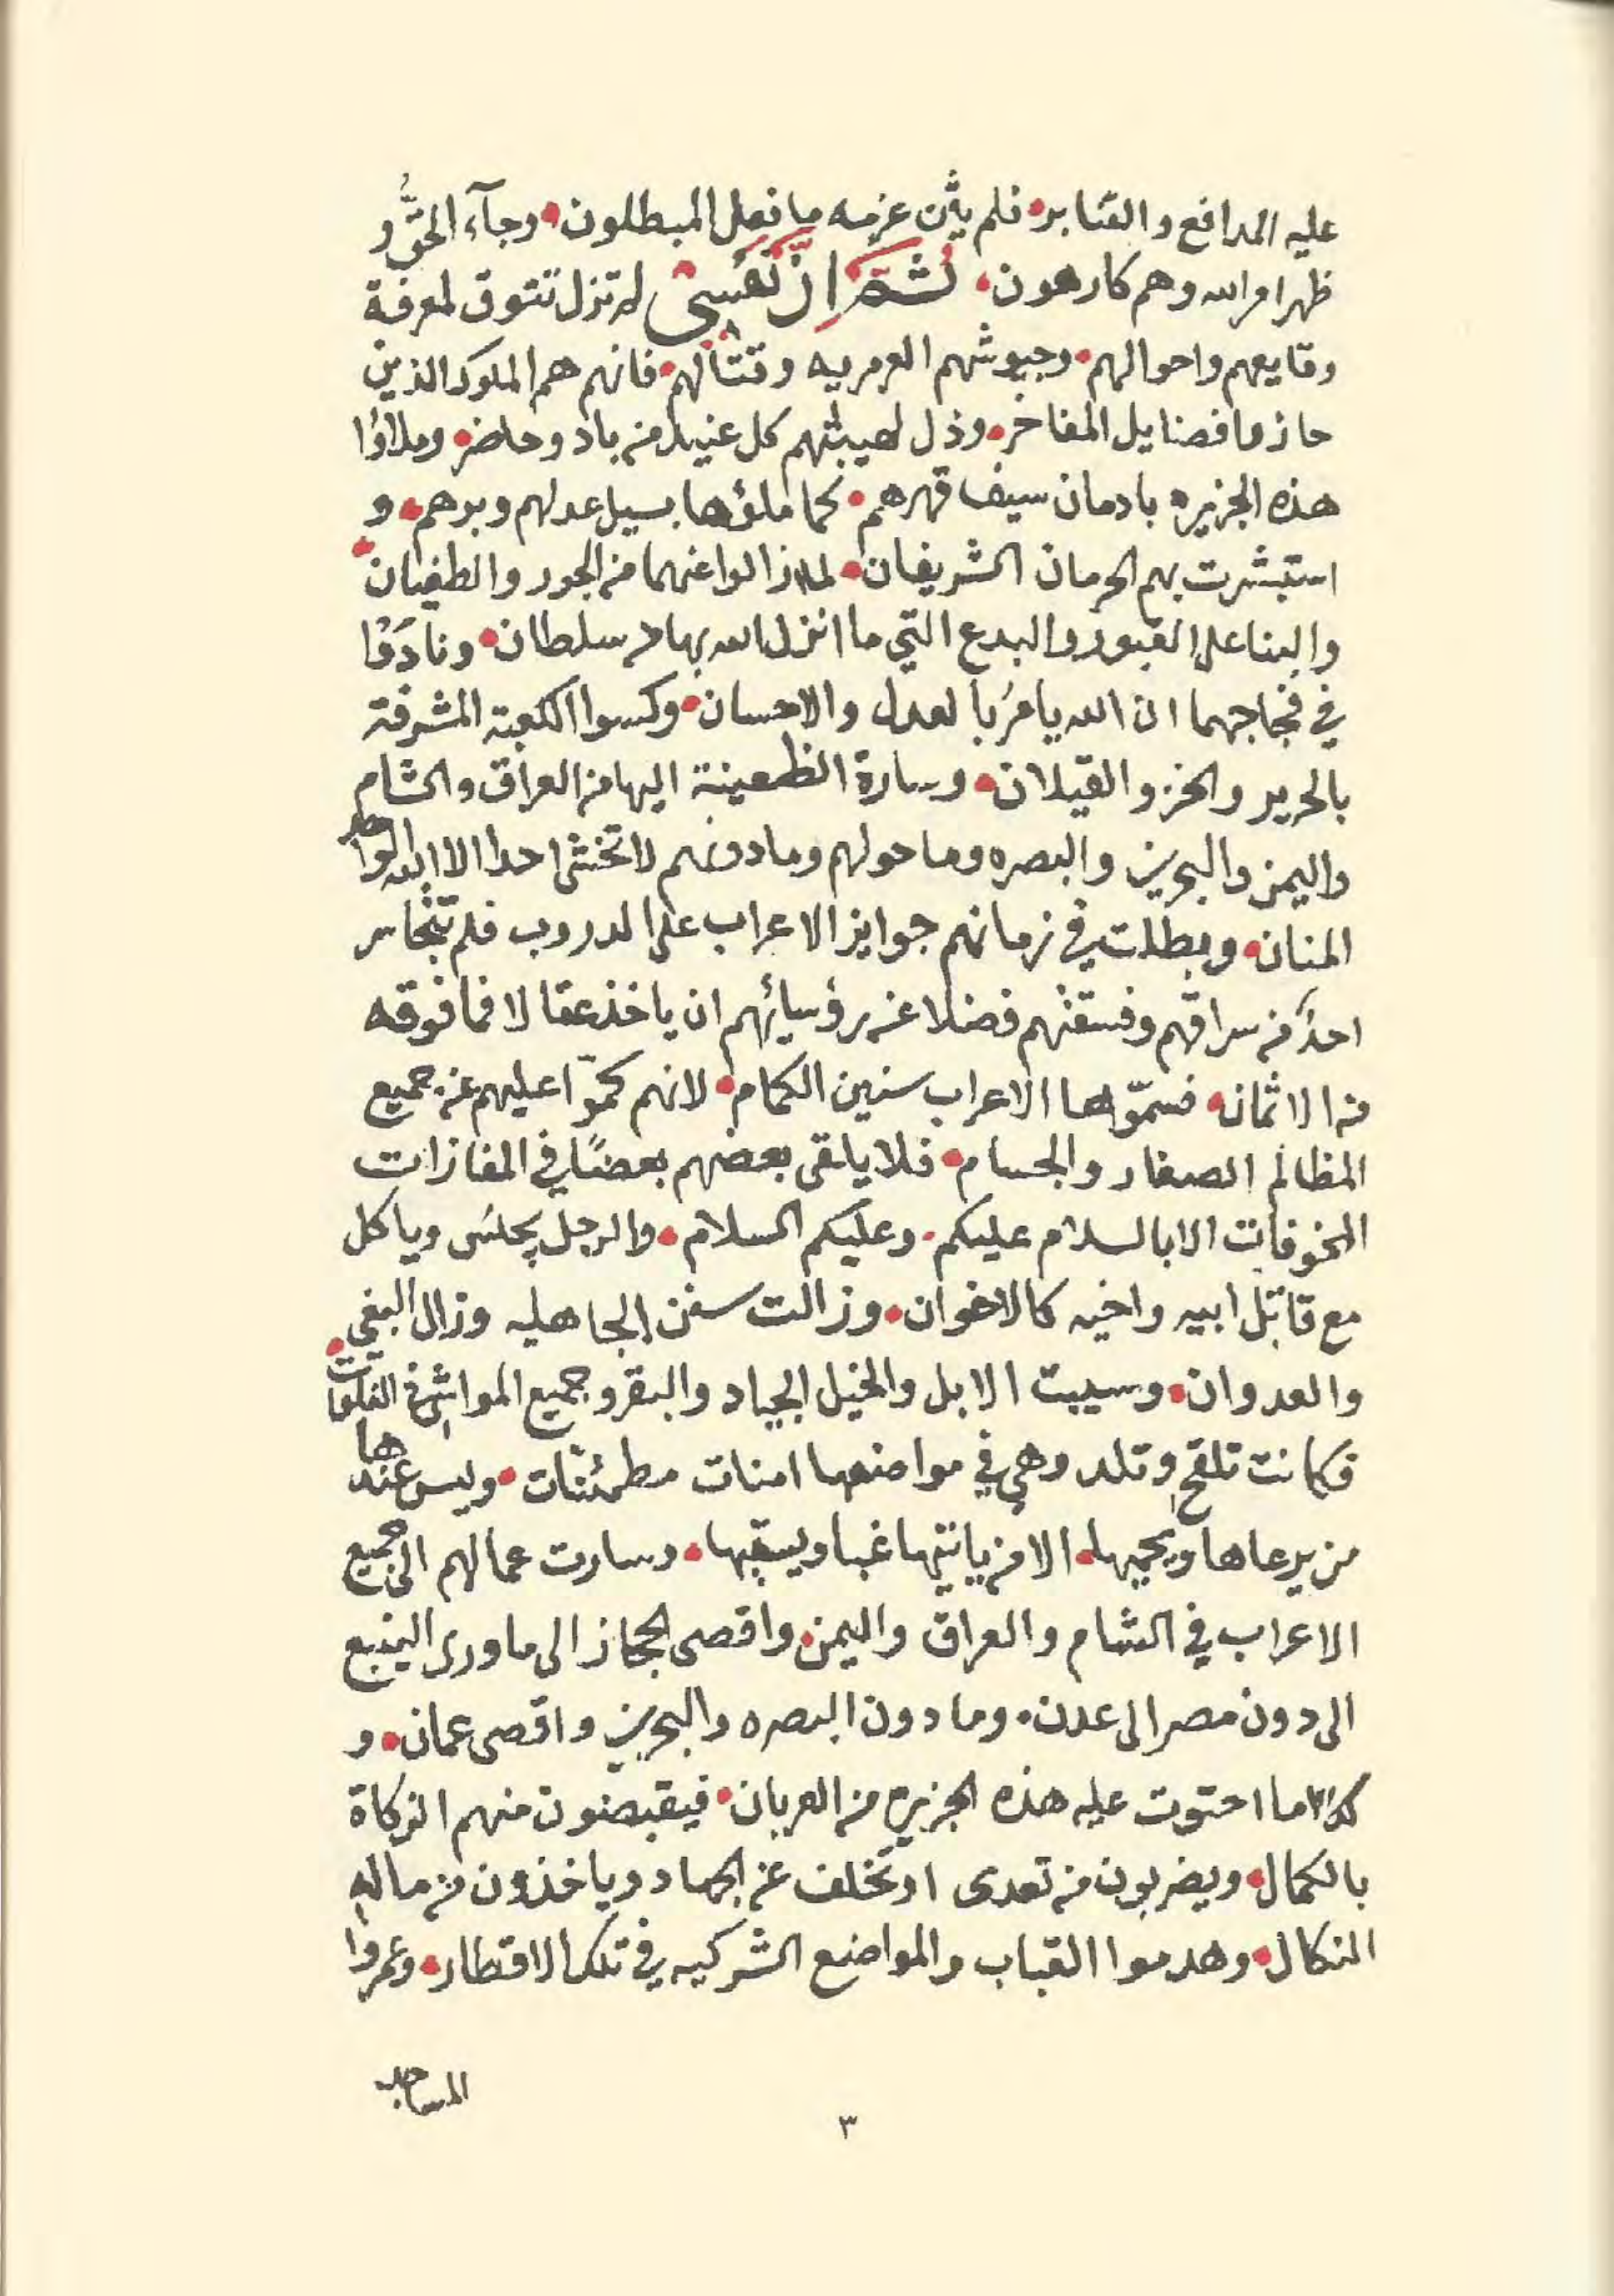 عليه المدافع والقنابر • فلم يثن عزمه ما فعل المبطلون • وجآء الحقُّ و
ظهر امر الله وهم كارهون • ثم ان نفسي لم تزل تتوق لمعرفة
وقايعهم واحوالهم • وجيوشهم العرمريه وقتالهم • فانهم هم الملوك الذين
حازوا فضايل المفاخر • وذل لهيبتهم كل عنيد من باد وحاضر • وملاؤا
هذه الجزيره بادمان سيف قهرهم • كما ملؤها بسيل عدلهم وبرهم • و
استبشرت بهم الحرمان الشريفان • لما ازالوا عنهما من الجور والطغيان •
والبنا على القبور والبدع التي ما انزل الله بها من سلطان • ونادَوْا
في فجاجهما ان الله يامرُ بالعدل والاحسان • وكسوا الكعبة المشرفة
بالحرير والخز والقيلان • وسارة الظعينة اليها من العراق والشام
واليمن والبحرين والبصره وما حولهم وما دونهم لا تخشى احدا الا الله الواحد
المنان • وبطلت في زمانهم جوايز الاعراب على الدروب فلم يتجاسر
احدٌ من سراقهم وفسقتهم فضلا عن رؤسائهم ان ياخذ عقالا فما فوقه
من الاثمان • فسمّوها الاعراب سنين الكمام • لانهم كمّوا عليهم عن جميع
المظالم الصغار والجسام • فلا يلقى بعضهم بعضًا في المفازات
المخوفات الا بالسلام عليكم • وعليكم السلام • والرجل يجلسُ وياكل
مع قاتل ابيه واخيه كالاخوان • وزالت سنن الجاهليه وزال البغي •
والعدوان • وسيبت الابل والخيل الجياد والبقر وجميع المواشي في الفلوات
فكانت تلقح وتلد وهي في مواضعها امنات مطمئنات • وليس عندها
من يرعاها ويحميها • الا من ياتيها غبا ويسقيها • وسارت عمالهم الى جميع
الاعراب في الشام والعراق واليمن • واقصى الحجاز الى ما ورى الينبع
الى دون مصر الى عدن • وما دون البصره والبحرين واقصى عمان • و
كلما احتوت عليه هذه الجزيره من العربان • فيقبضون منهم الزكاة
بالكمال • ويضربون من تعدى او تخلف عن الجهاد وياخذون من مالهِ
النكال • وهدموا القباب والمواضع الشركيه في تلك الاقطار • وعمروا
المساجد
٣